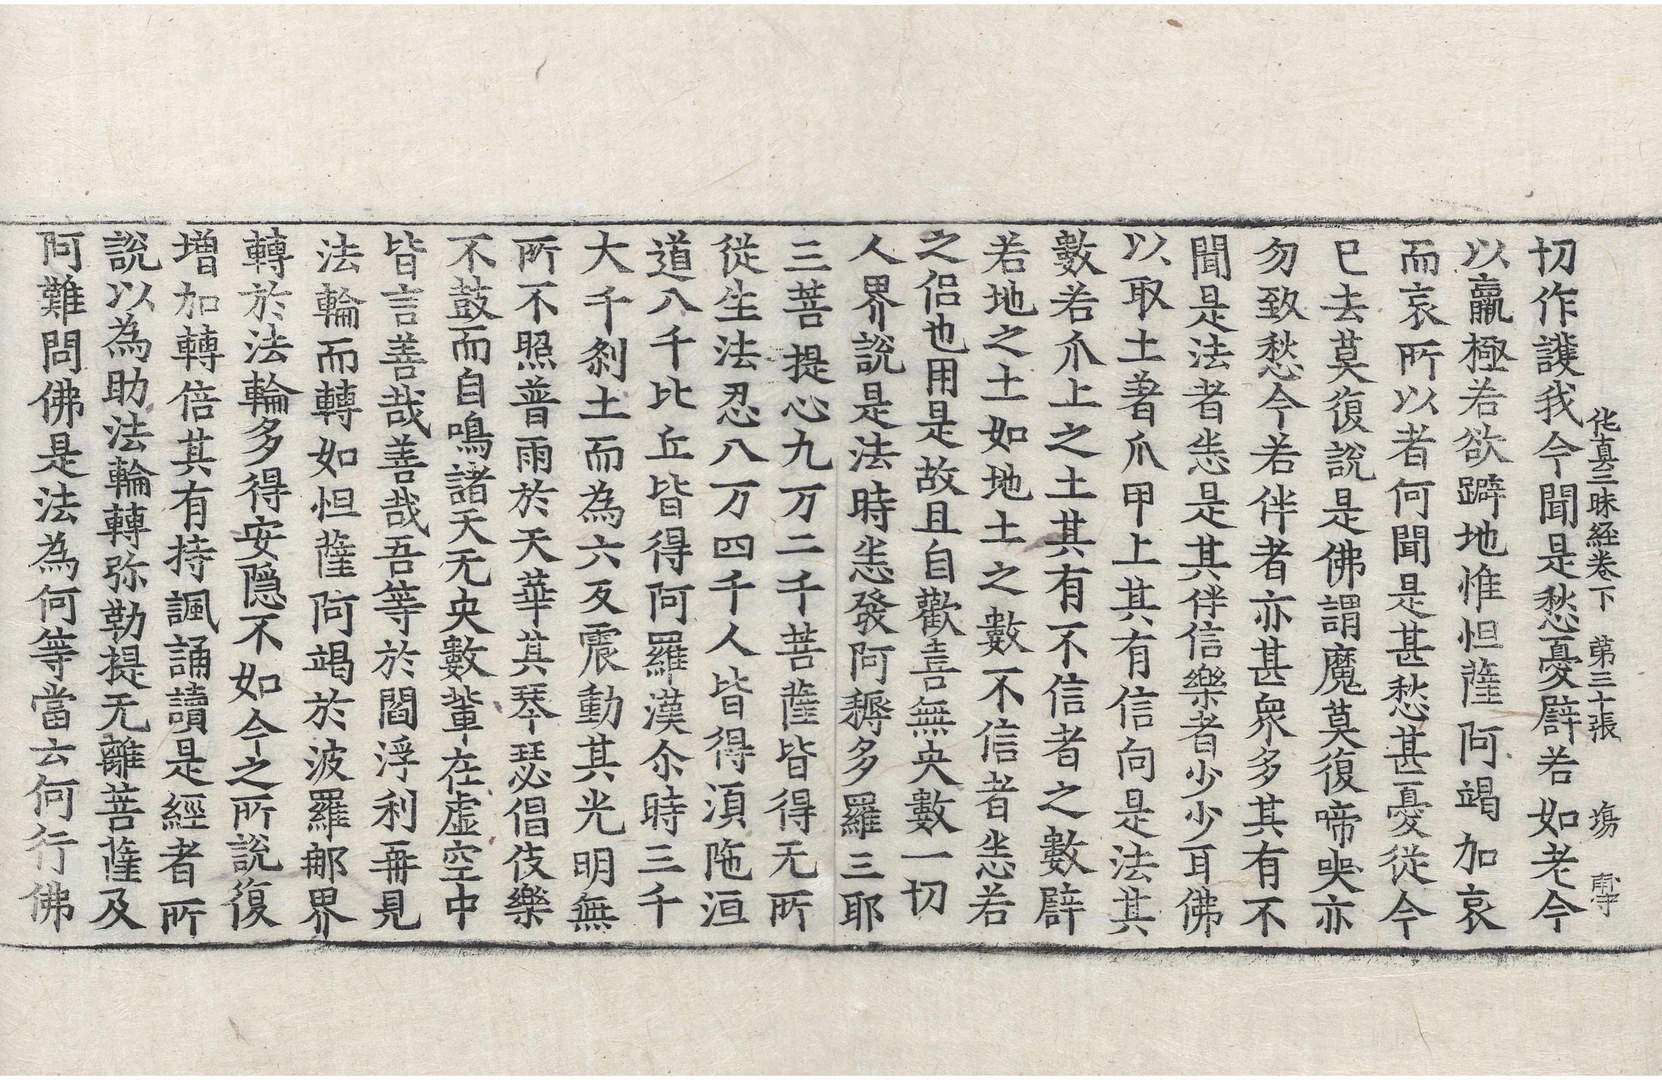 切作護我今聞是愁憂譬若如老今
他真三昧経卷下　苐三十張　塲
以羸極若欲躃地惟怛薩阿竭加哀
而哀所以者何聞是甚愁甚憂從今
已去莫復說是佛謂魔莫復啼㘝亦
勿致愁今若伴者亦甚衆多其有不
聞是法者恙是其伴信樂者少少耳佛
以取土著爪甲上其有信向是法其
數若爪上之土其有不信者之數譬
若地之土如地土之數不信者恙若
之侣也用是故且自歡喜無央數一切
人界說是法時恙發阿耨多羅三耶
三菩提心九万二千菩薩皆得无所
從生法忍八万四千人皆得湏陁洹
道八千比丘皆得阿羅漢尒時三千
大千刹土而為六反震動其光明無
所不照普雨於天華其琴瑟倡伎樂
不鼓而自鳴諸天无央數軰在虛空中
皆言善哉善哉吾等於閻浮利再見
法輪而轉如怛薩阿竭於波羅㮈界
轉於法輪多得安隱不如今之所說復
增加轉倍其有持諷誦讀是經者所
說以為助法輪轉弥勒提无離菩薩及
阿難問佛是法為何等當云何行佛